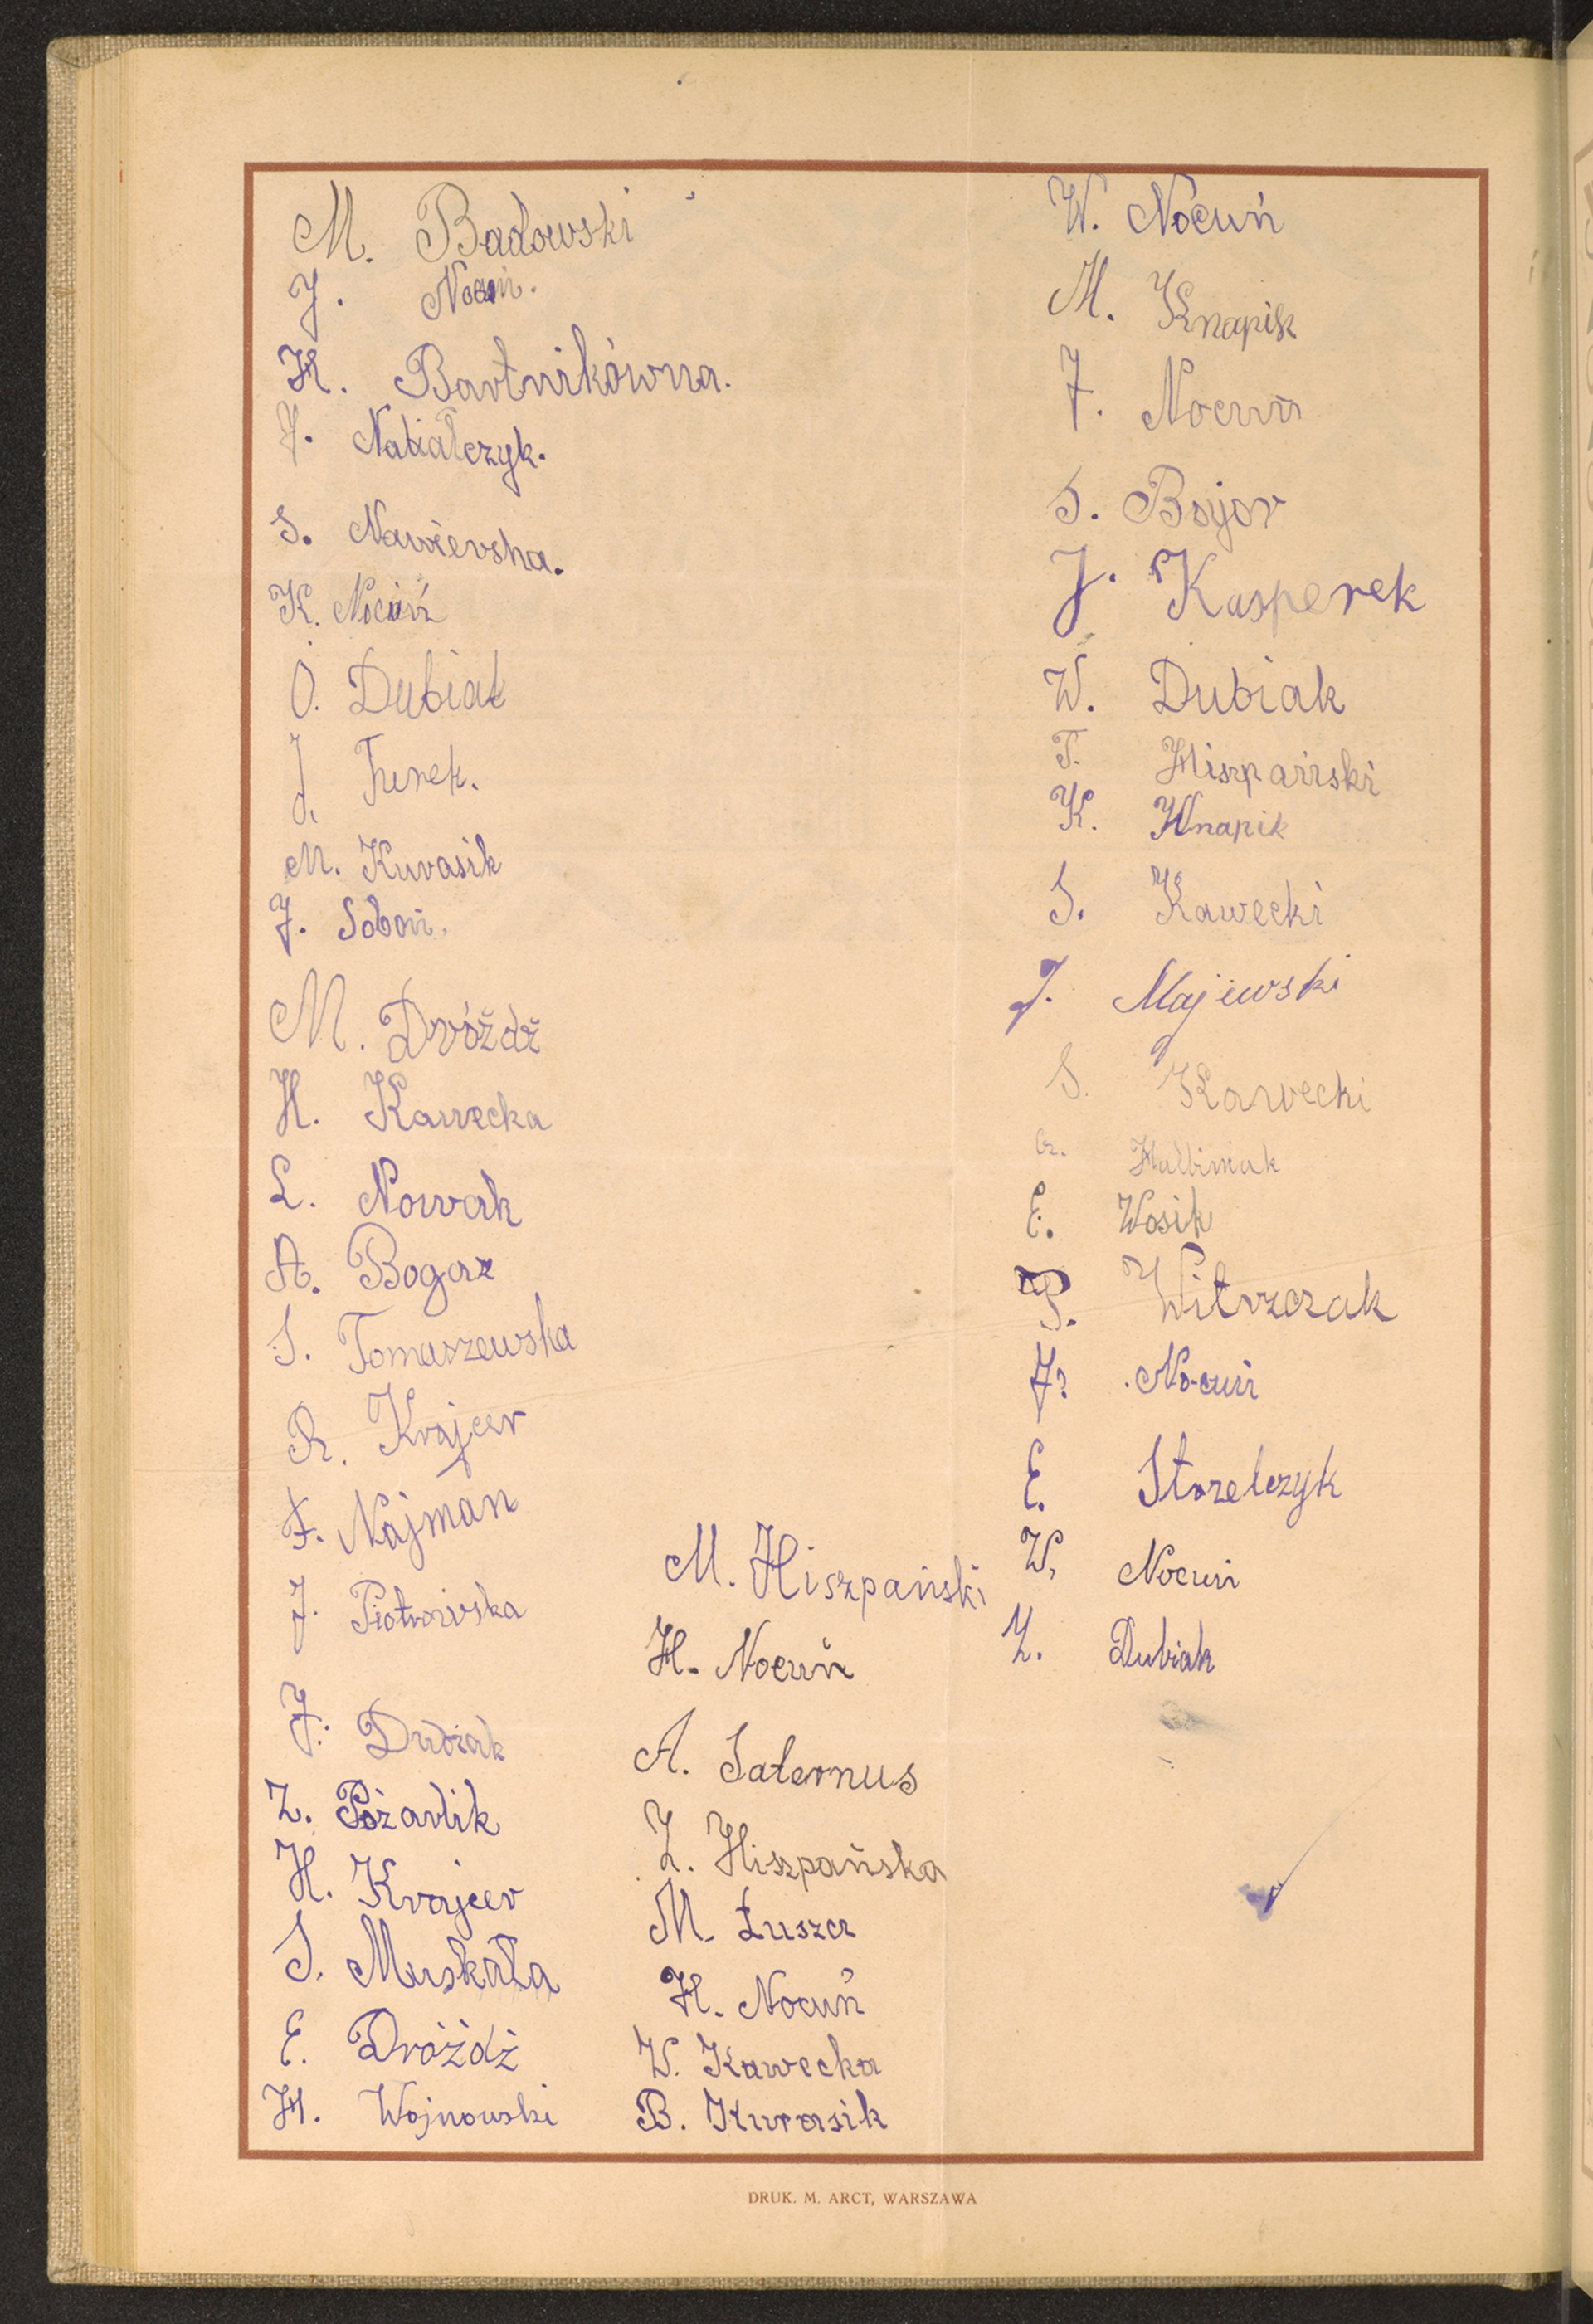 M. Badowski
J. Nocuń.
H. Bartnikówna.
J. Nabiałczyk.
S. Nawierska.
K. Nocuń
O. Dubiak
J. Turek.
M. Kurasik
J. Soboń.
M. Dróżdż
H. Kawecka
L. Nowak
A. Bogacz
S. Tomaszewska
R. Krajcer
F. Najman
J. Piotrowska
J. Dubiak
Z. Pożarlik
H. Krajcer
S. Muskała
E. Dróżdż
H. Wojnowski
M. Hiszpański
H. Nocuń
A. Saternus
Z. Hiszpańska
M. Łuszcz
H. Nocuń
W. Kawecka
B. Kurasik
W. Nocuń
M. Knapik
F. Nocuń
S. Bojor
J. Kasperek
W. Dubiak
T. Hiszpański
K. Knapik
S. Kawecki
J. Majewski
S. Kawecki
Cz. Halbiniak
E. Wosik
P. Witrzczak
J. Nocuń
E. Strzelczyk
W. Nocuń
Z. Dubiak
DRUK. M. ARCT, WARSZAWA